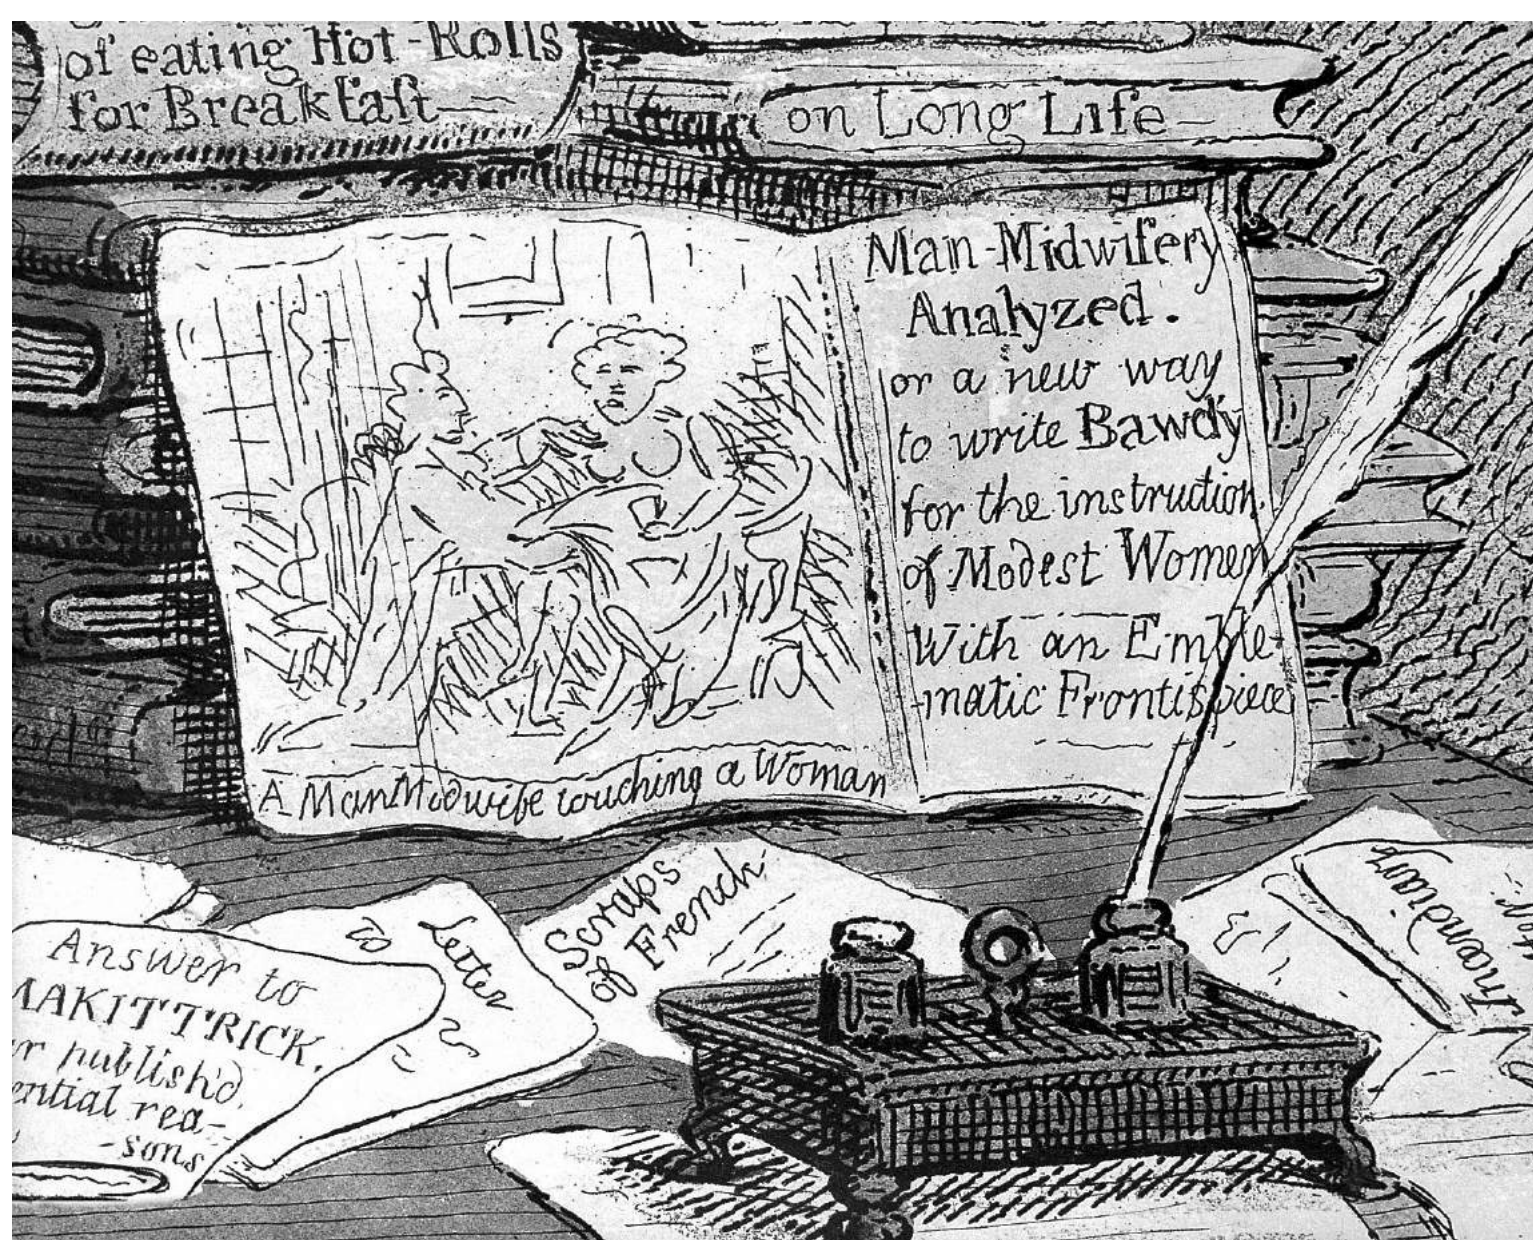 of eating Hot-Rolls
for Breakfaſt—
on Long Life—
Man-Midwifery
Analyzed.
or a new way
to write Bawdy
for the instruction
of Modest Women
With an Emble-
-matic Frontispiece
A ManMidwife touching a Woman
Answer to
MAKITTRICK.
publish'd
rea-
-sons
Letter
to
Scraps
of French